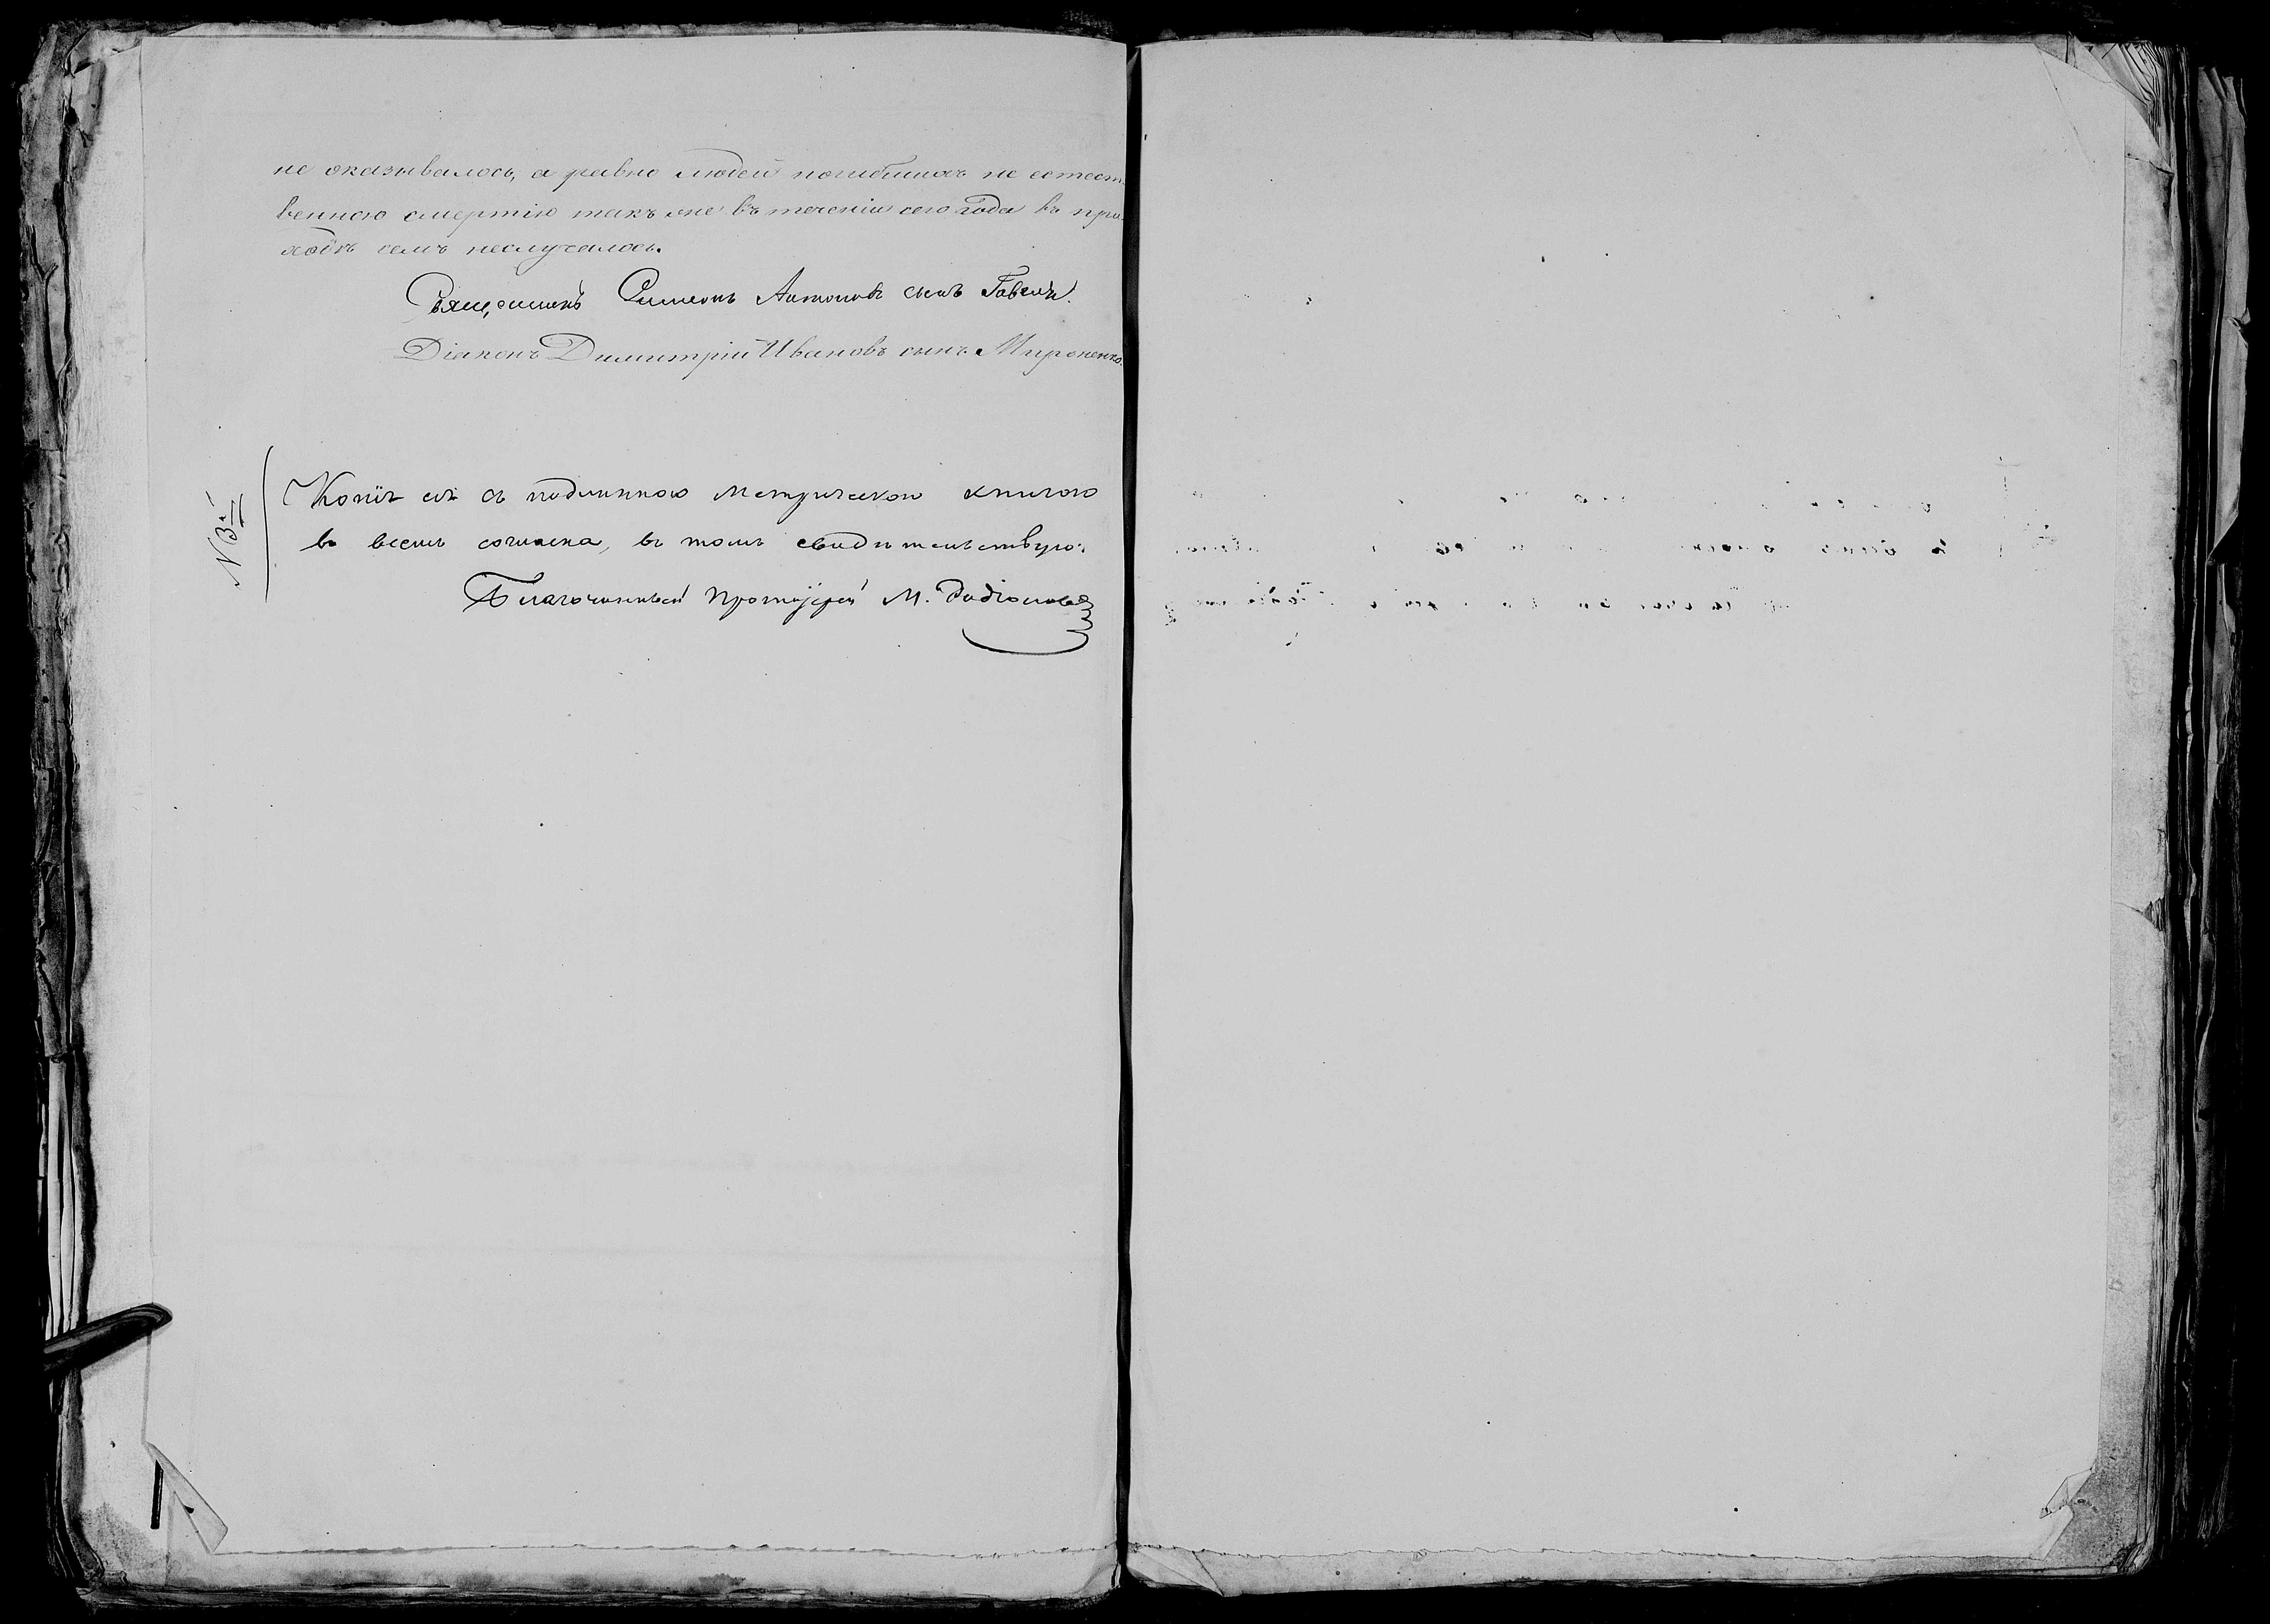 не оказывалось, а равно людей погибшихъ не естест-
венною смертію такъ же въ теченіи сего года въ при-
ходѣ семъ неслучалось.
Священникъ Симеонъ Антоновъ сынъ
Діаконъ Димитрій Ивановъ сынъ Мироненко.
N 3й
Копія сія съ подлинною метрическою книгою
во всемъ согласна, въ томъ свидѣтельствую:
Благочинный Протоіерей М. Родіоновъ